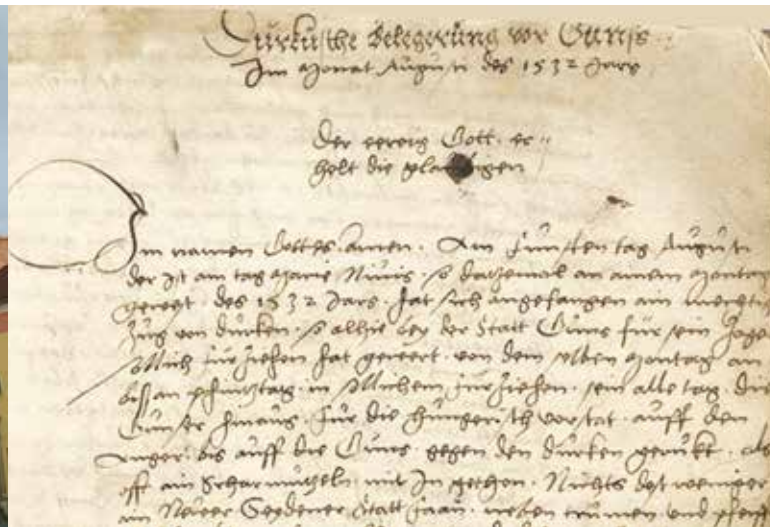 Turkische belegerung vor Guns
Im Monat Augusti des 1532 Jars
Der ewig Gott er=
helt die glaubigen
Im namen Gottes amen. Am funften tag Augusti
der ist am tag Marie Nivis, so datzemal an ainem Montag
gewest des 1532 Jars. hat sich angefangen ain mechtig
Zug von durken, so alhie bey der Statt Guns für sein
solich fürziehen hat geweert von dem selben Montag an
biss an pfintztag in solichem fürziehen. sein alle tag die
Gunser hinaus für die hungerisch vorstat auff den
anger bis auff die Guns gegen den durken geruckt, als
off ain Scharmutzeln mit In gethon. Nichts dest weniger
Statt und